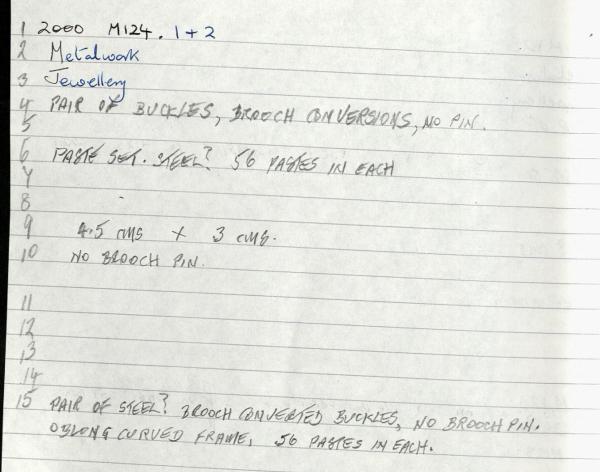 1 2000 M124. 1+2
2 Metalwork
3 Jewellery
4 PAIR OF BUCKLES, BROOCH CONVERSIONS, NO PIN.
5
6 PASTE SET. STEEL? 56 PASTES IN EACH
7
8
9 4.5 CMS X 3 CMS.
10 NO BROOCH PIN.
11
12
13
14
15 PAIR OF STEEL? BROOCH CONVERTED BUCKLES, NO BROOCH PIN.
OBLONG CURVED FRAME, 56 PASTES IN EACH.